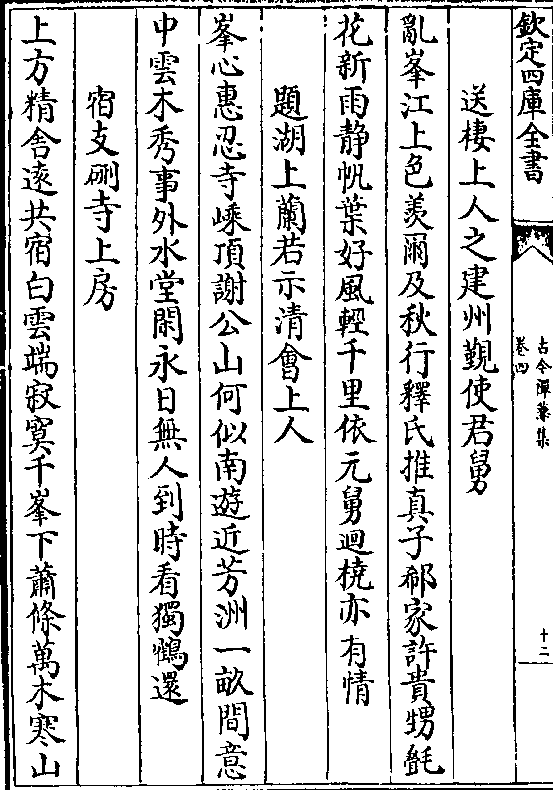 欽定四庫全書
古今禪藻集
卷四
十二
送棲上人之建州覲使君舅
亂峯江上色羨爾及秋行釋氏推真子郗家許貴甥㲲
花新雨静帆葉好風輕千里依元舅迴橈亦有情
題湖上蘭若示清會上人
峯心惠忍寺嵊頂謝公山何似南遊近芳洲一畝間意
中雲木秀事外水堂閑永日無人到時看獨鶴還
宿支硎寺上房
上方精舍遠共宿白雲端寂寞千峯下蕭條萬木寒山